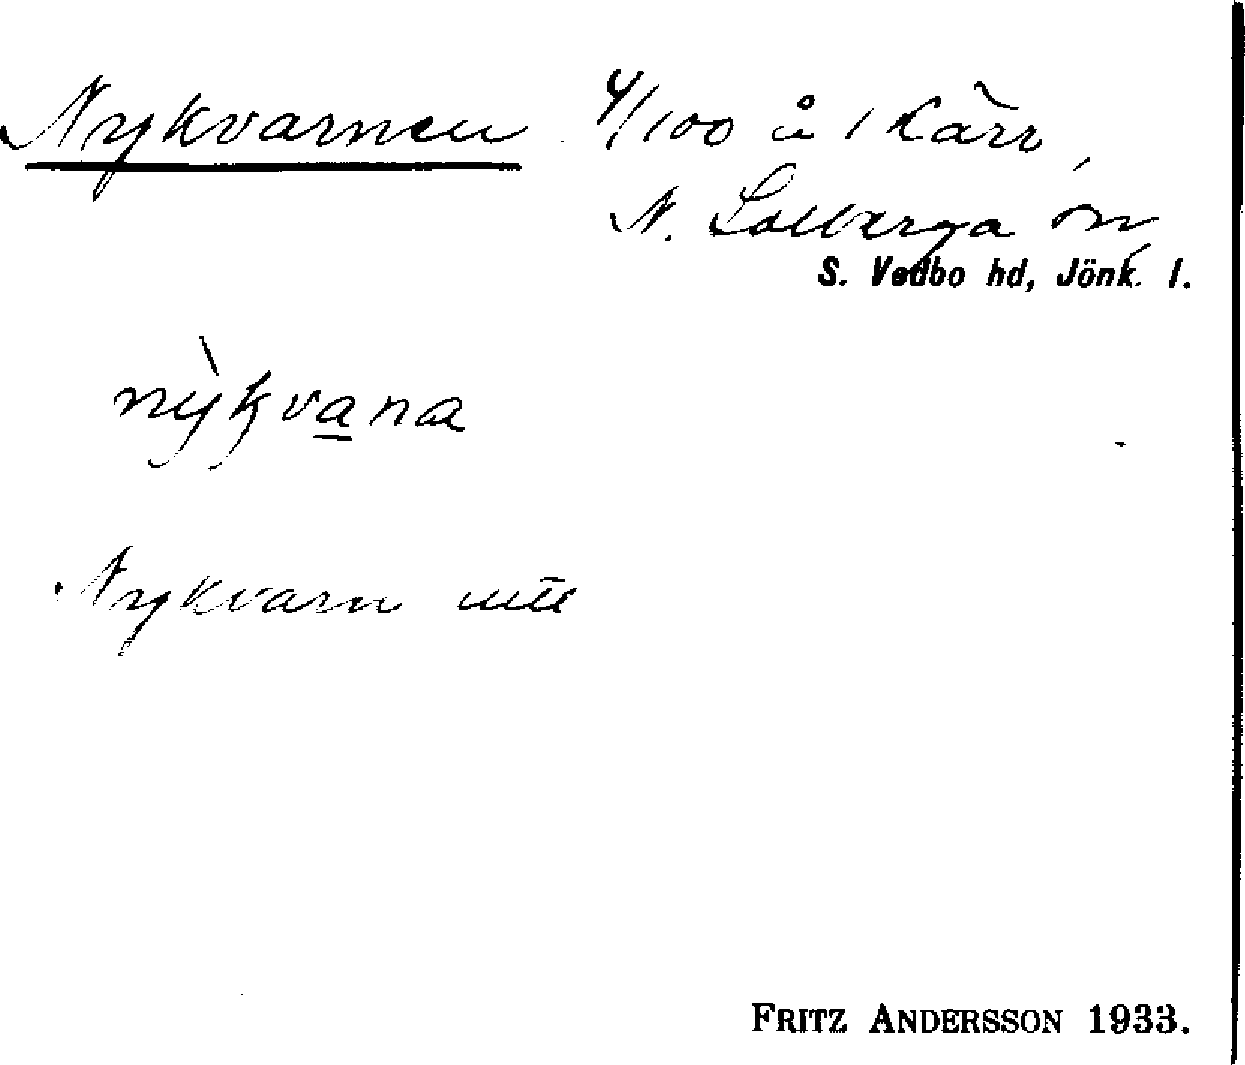 Nykvarnen 4/100 å 1 Kärr,
N. Solberga sn,
S. Vedbo hd, Jönk. l.
nỳkvana
Nykvarn
FRITZ ANDERSSON 1933.